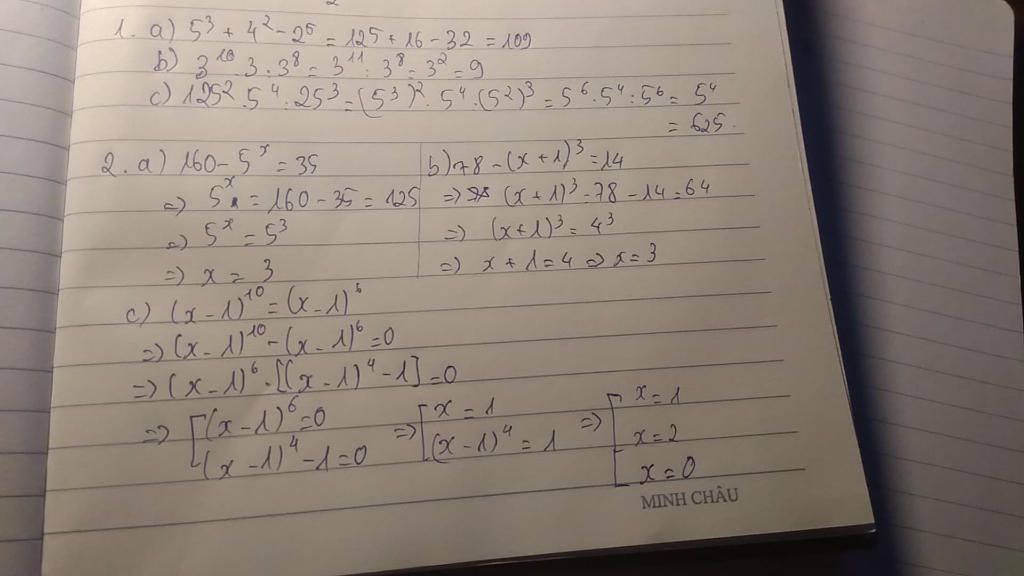 1. a) 5³ + 4² - 2⁵ = 125 + 16 - 32 = 109
b) 3¹⁰ . 3 : 3⁸ = 3¹¹ : 3⁸ = 3² = 9
c) 125² . 5⁴ : 25³ = (5³)² . 5⁴ : (5²)³ = 5⁶ . 5⁴ : 5⁶ = 5⁴
= 625.
2. a) 160 - 5ˣ = 35
=> 5ˣ = 160 - 35 = 125
=> 5ˣ = 5³
=> x = 3
b) 78 - (x + 1)³ = 14
=> (x + 1)³ = 78 - 14 = 64
=> (x + 1)³ = 4³
=> x + 1 = 4 => x = 3
c) (x - 1)¹⁰ = (x - 1)⁶
=> (x - 1)¹⁰ - (x - 1)⁶ = 0
=> (x - 1)⁶ . [(x - 1)⁴ - 1] = 0
=> [ (x - 1)⁶ = 0 => [ x = 1 => [ x = 1
(x - 1)⁴ - 1 = 0 (x - 1)⁴ = 1 x = 2
x = 0
MINH CHÂU